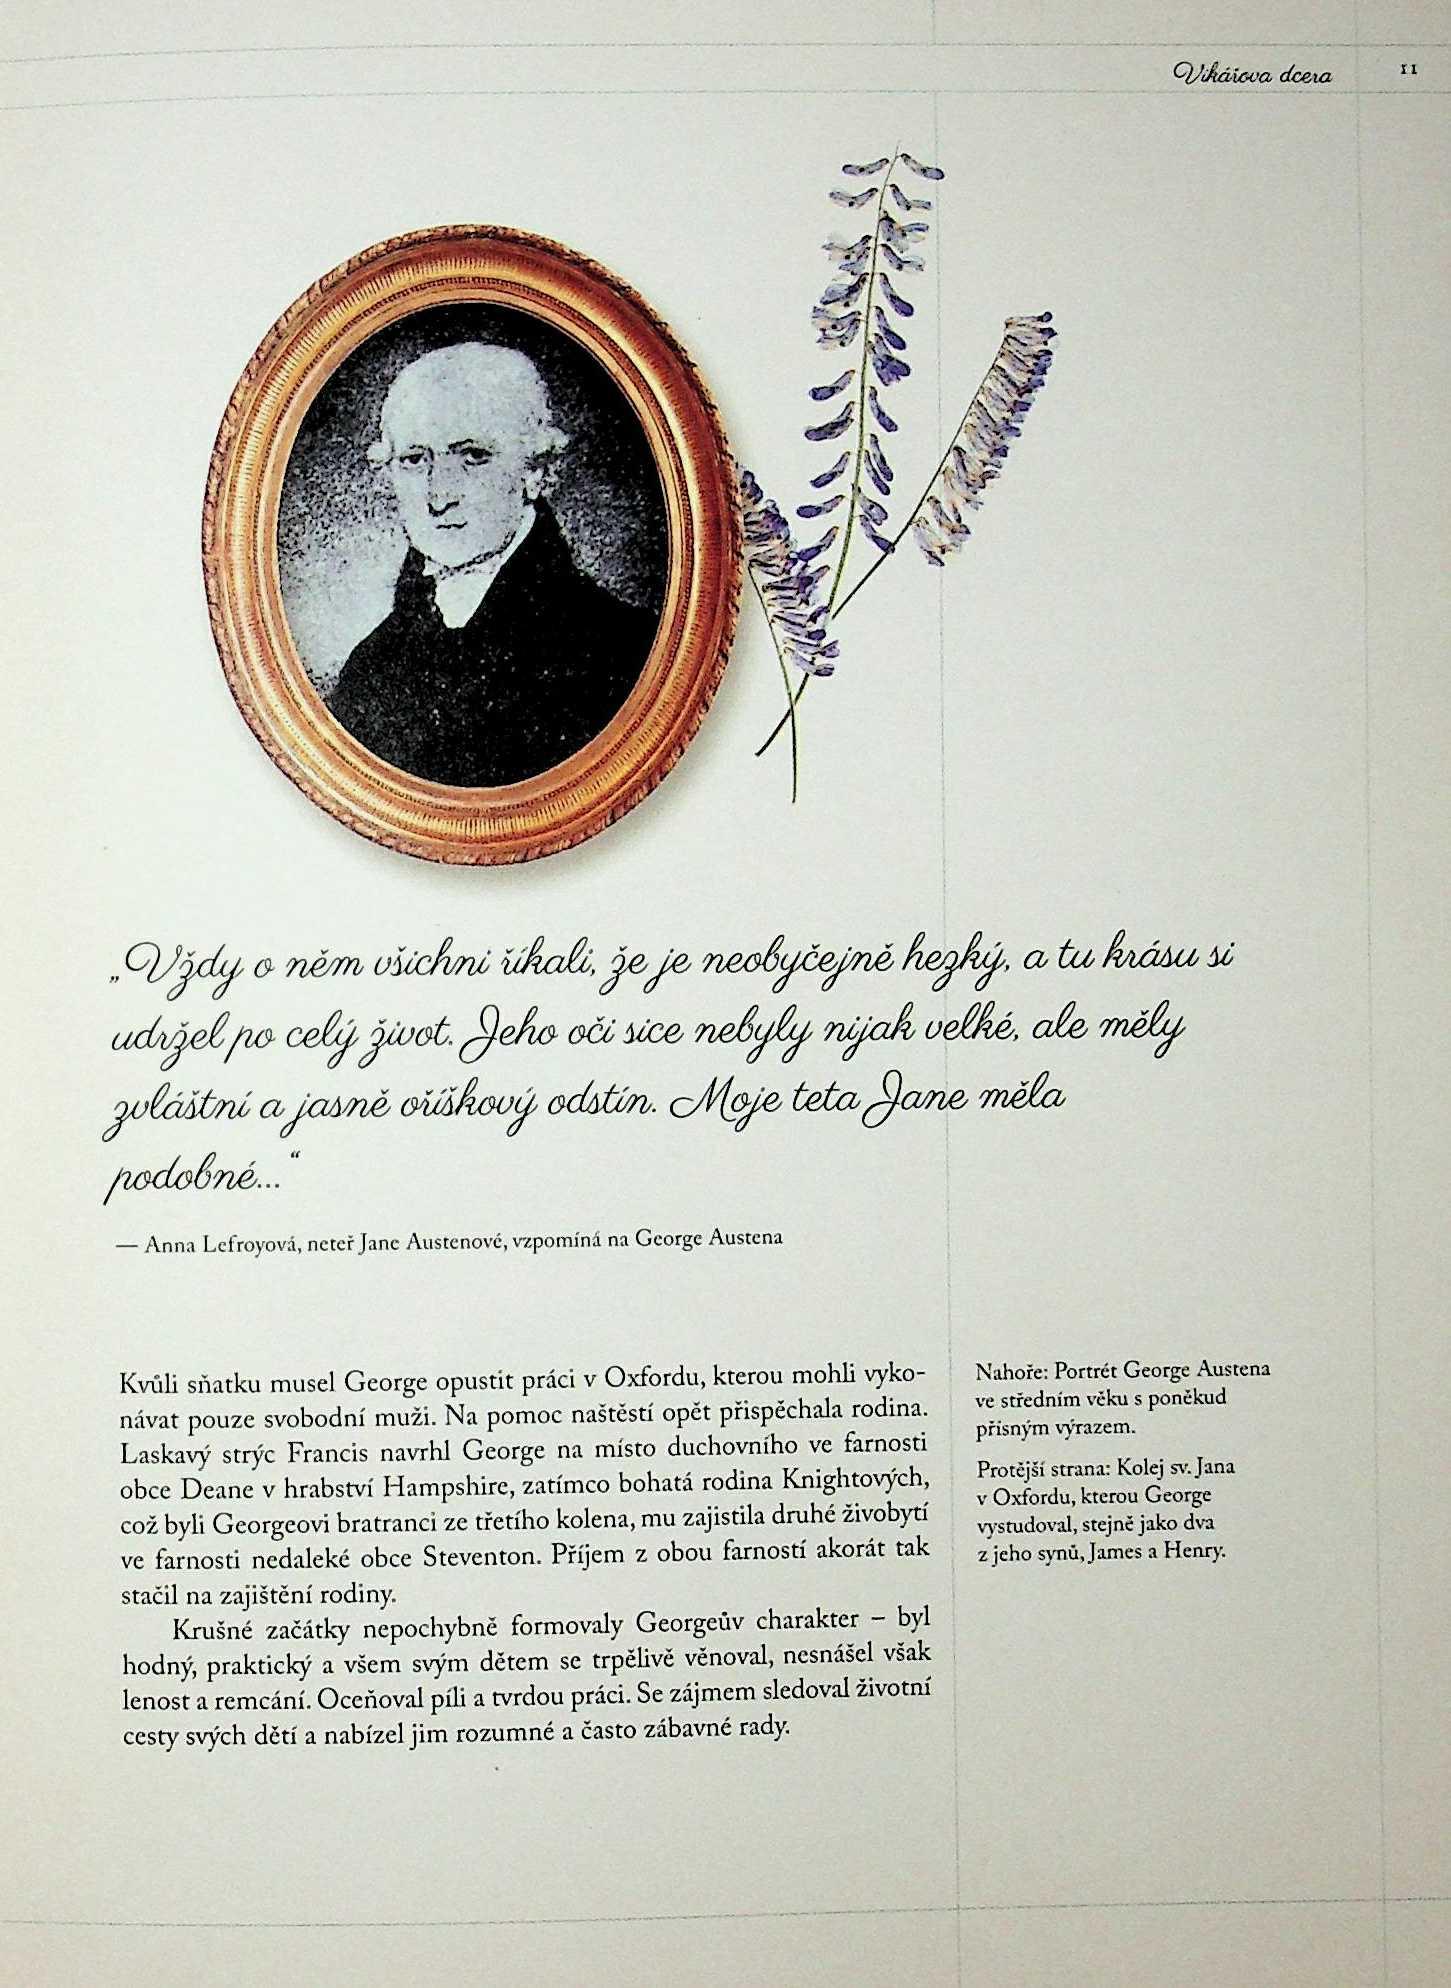 Vikářova dcera 11
„Vždy o něm všichni říkali, že je neobyčejně hezký, a tu krásu si
udržel po celý život. Jeho oči sice nebyly nijak velké, ale měly
zvláštní a jasně oříškový odstín. Moje teta Jane měla
podobné...“
— Anna Lefroyová, neteř Jane Austenové, vzpomíná na George Austena
Kvůli sňatku musel George opustit práci v Oxfordu, kterou mohli vyko-
návat pouze svobodní muži. Na pomoc naštěstí opět přispěchala rodina.
Laskavý strýc Francis navrhl George na místo duchovního ve farnosti
obce Deane v hrabství Hampshire, zatímco bohatá rodina Knightových,
což byli Georgeovi bratranci ze třetího kolena, mu zajistila druhé živobytí
ve farnosti nedaleké obce Steventon. Příjem z obou farností akorát tak
stačil na zajištění rodiny.
Krušné začátky nepochybně formovaly Georgeův charakter – byl
hodný, praktický a všem svým dětem se trpělivě věnoval, nesnášel však
lenost a remcání. Oceňoval píli a tvrdou práci. Se zájmem sledoval životní
cesty svých dětí a nabízel jim rozumné a často zábavné rady.
Nahoře: Portrét George Austena
ve středním věku s poněkud
přísným výrazem.
Protější strana: Kolej sv. Jana
v Oxfordu, kterou George
vystudoval, stejně jako dva
z jeho synů, James a Henry.